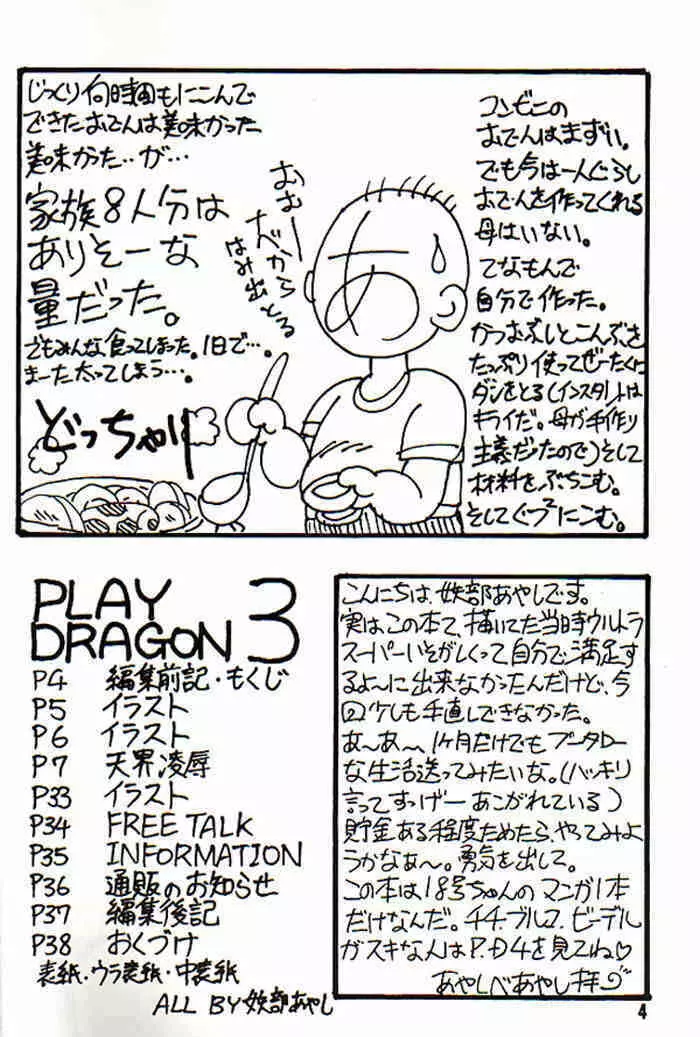 コンビニの
おでんはまずい。
でも今は一人ぐらし
おでんを作ってくれる
母はいない。
てなもんで
自分で作った。
かつおぶしとこんぶを
たっぷり使ってぜーたくに
ダシをとる(インスタントは
キライだ。母が手作り
主義だったので)そして
材料をぶちこむ。
そしてぐつぐつにこむ。
じっくり何時間もにこんで
できたおでんは美味かった
美味かった…が…
家族8人分は
ありそーな
量だった。
でもみんな食ってしまった。1日で…。
まーた太ってしまう…。
おむー
ナベから
はみ出とる
どっちゃり
PLAY
DRAGON 3
P4 編集前記・もくじ
P5 イラスト
P6 イラスト
P7 天界凌辱
P33 イラスト
P34 FREE TALK
P35 INFORMATION
P36 通販のお知らせ
P37 編集後記
P38 おくづけ
表紙・ウラ表紙・中表紙
ALL BY 妖部あやし
こんにちは、妖部あやしです。
実は、この本て、描いてた当時ウルトラ
スーパーいそがしくって自分で満足す
るよ〜に出来なかったんだけど、今
回少しも手直しできなかった。
あ〜あ〜、1ヶ月だけでもプータロー
な生活送ってみたいな。(ハッキリ
言ってすっげーあこがれている)
貯金ある程度ためたら、やってみよ
うかなぁ〜。勇気を出して。
この本は18号ちゃんのマンガ1本
だけなんだ。チチ、ブルマ、ビーデル
がスキな人はP.D4を見てね♡
あやしべあやし拝
4